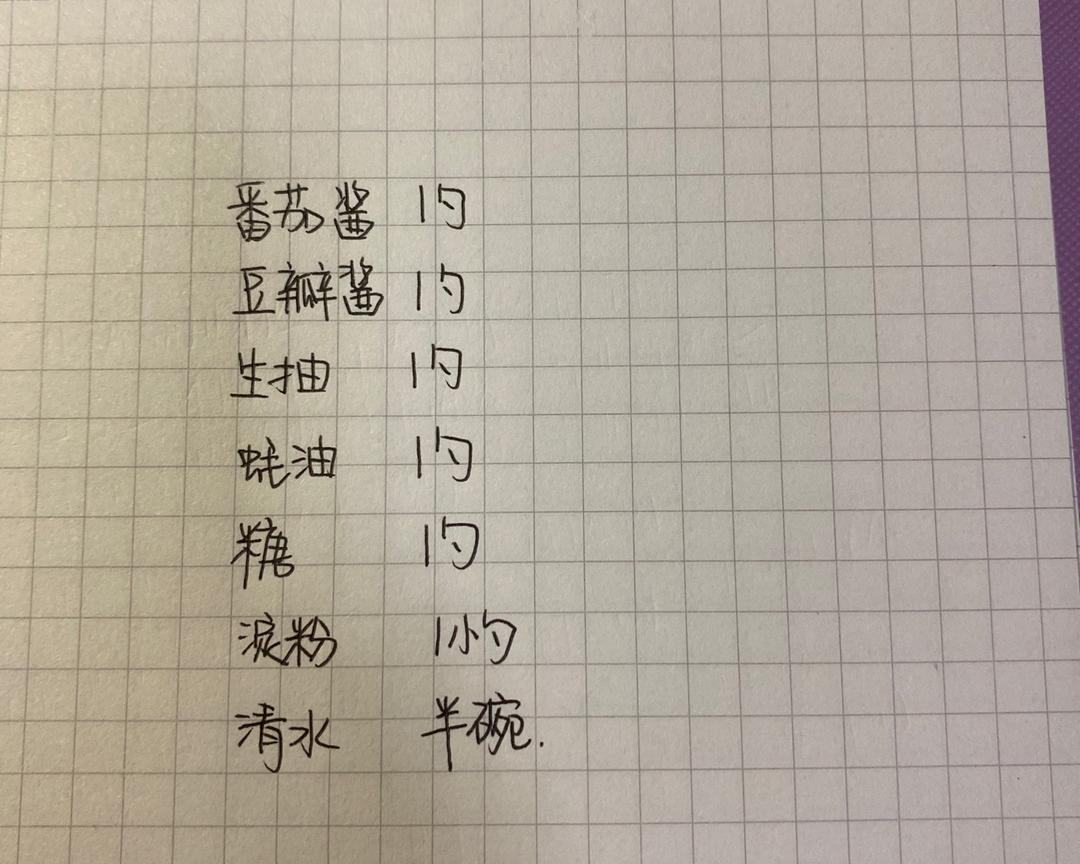 番茄酱 1勺
豆瓣酱 1勺
生抽 1勺
蚝油 1勺
糖 1勺
淀粉 1小勺
清水 半碗.